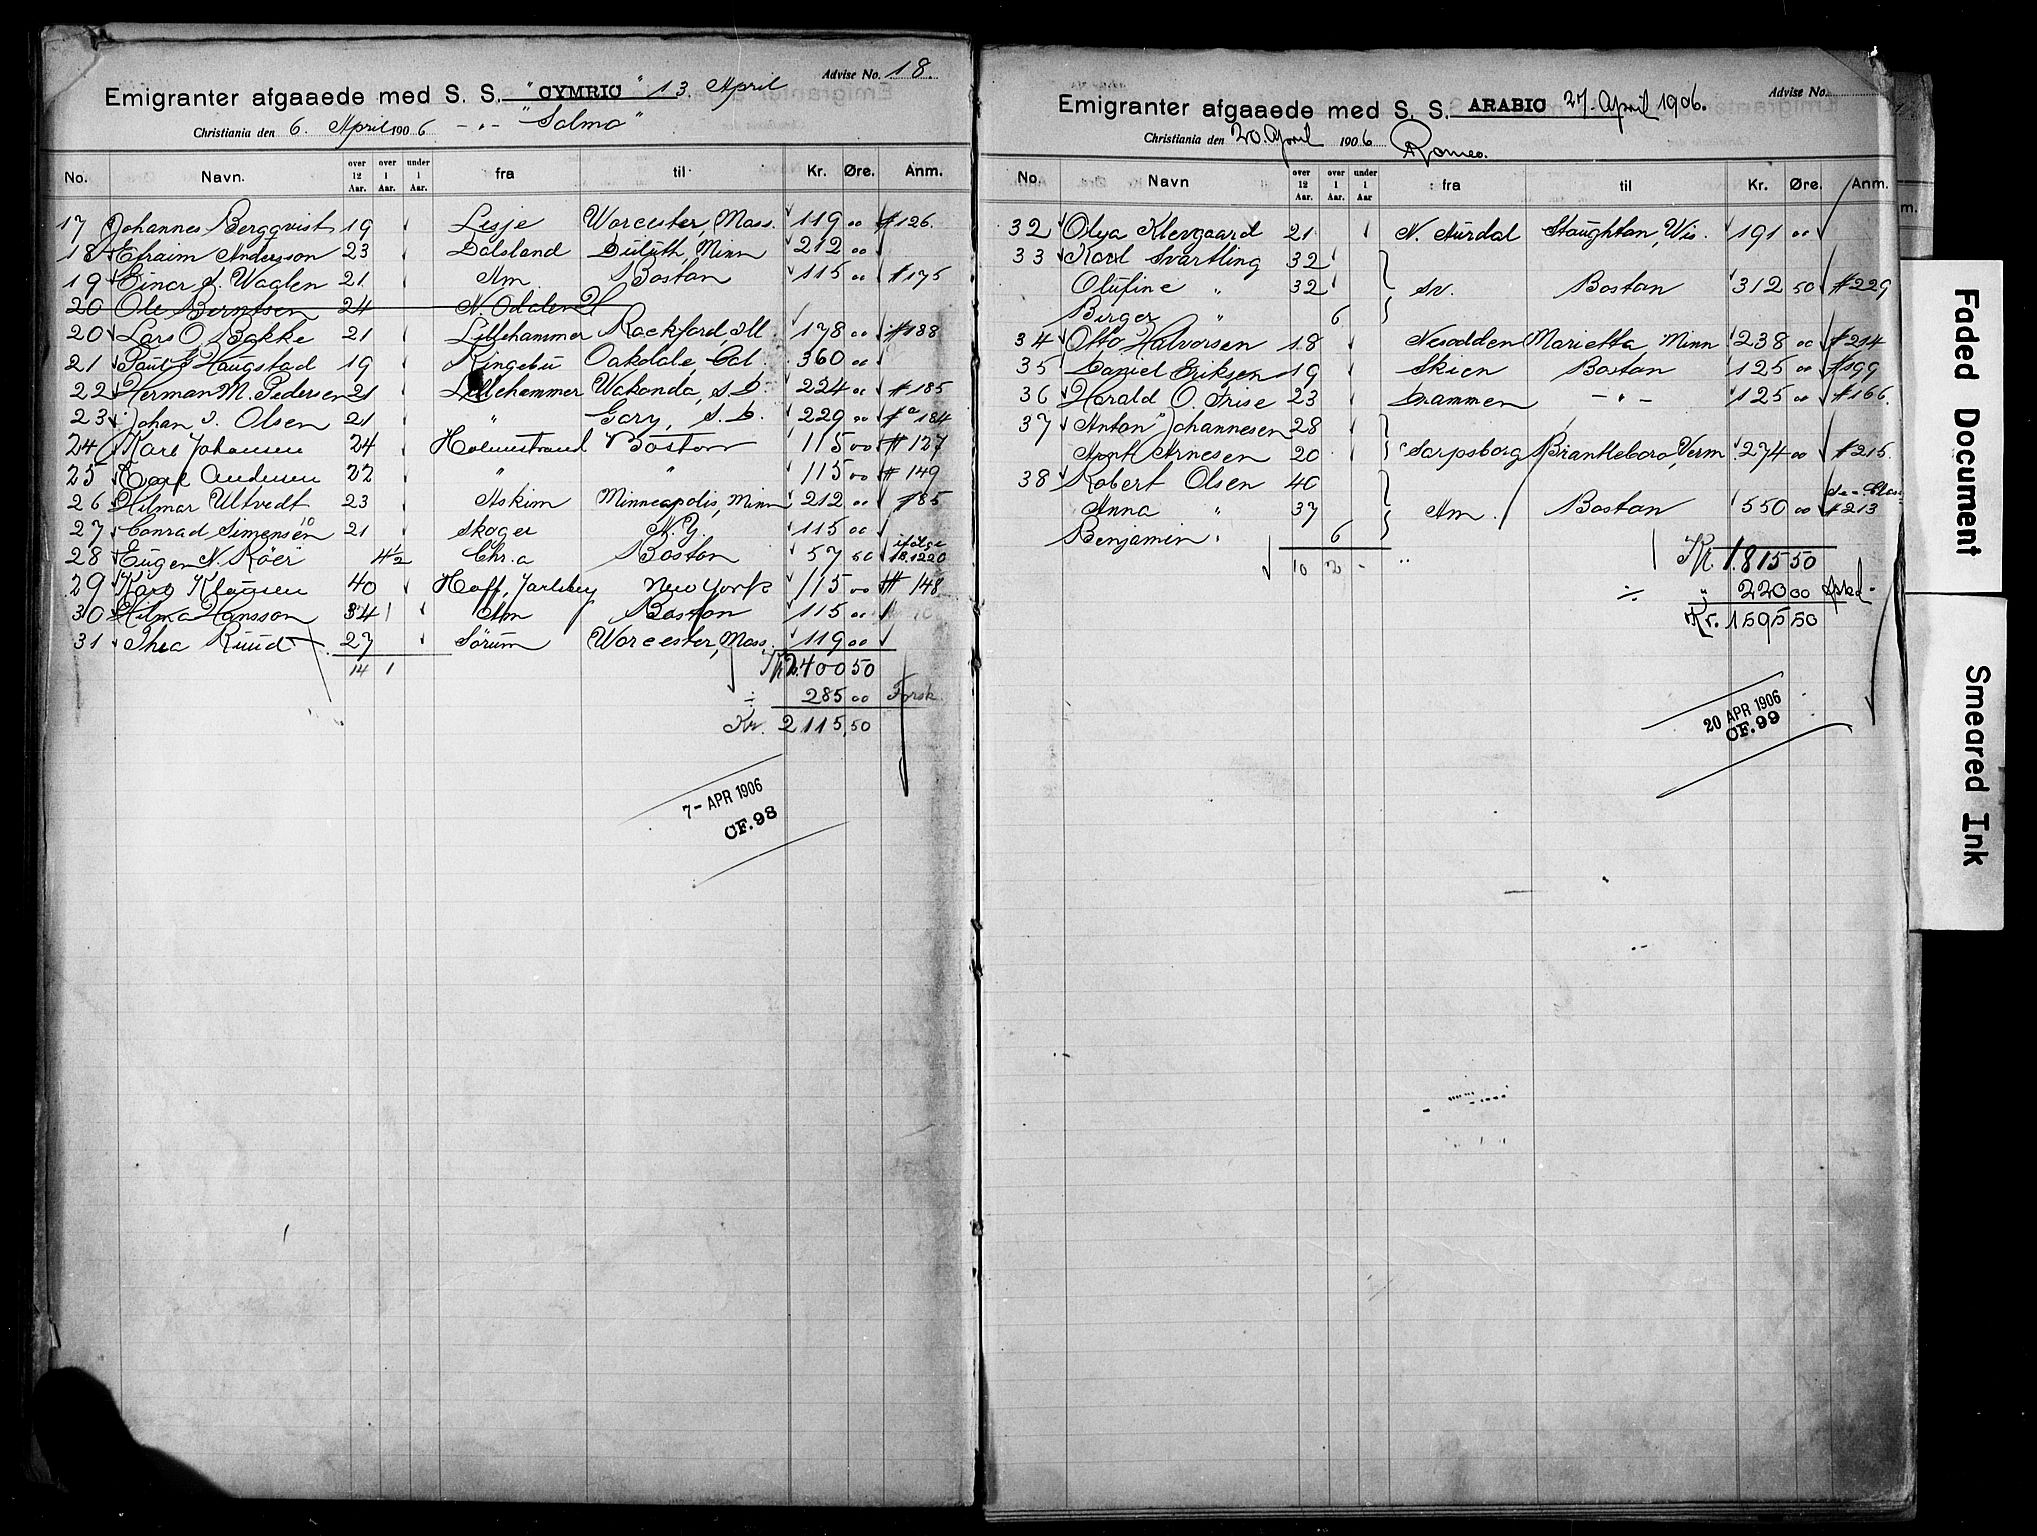 Advise No. 18.
Emigranter afgaaede med S. S. "CYMRIC" 13. April
Christiania den 6. April 1906 -"- "Salmo"
No. Navn. over 12 Aar. over 1 Aar. under 1 Aar. fra til Kr. Øre. Anm.
17 Johannes Bergqvist 19 Lesje Worcester, Mass. 119 00 #126
18 Efraim Andersson 23 Dalsland Duluth, Minn 212 00
19 Einar S. Waalen 21 Am Boston 115 00 #175
20 Ole Berntsen 24 N. Odalen
20 Lars O. Bakke 21 Lillehammer Rockford, Ill 178 00 #138
21 Paul E Haugstad 19 Ringebu Oakdale, Cal 360 00
22 Herman M. Pedersen 21 Lillehammer Wakonda, S. D. 224 00 #185
23 Johan J. Olsen 21 " Gary, S. D. 229 00 #184
24 Karl Johansen 24 Holmestrand Boston 115 00 #127
25 Carl Andersen 22 " " 115 00 #149
26 Hilmar Ultvedt 23 Askim Minneapolis, Minn 212 00 #85
27 Conrad Simensen 21 Skoger N. Y. 115 00
28 Eugen N. Röer 4½ Chr.a Boston 57 50 1220
29 Karo Klausen 40 Hoff, Jarlsberg New York 115 00 #148
30 Hilma Hansson 34 Am Boston 115 00
31 Thea Ruud 27 Sörum Worcester, Mass. 119 00
14 1 Kr 2400 50
÷ 285 00 Forsk.
Kr. 2115,50
7- APR 1906
CF. 98
Advise No.
Emigranter afgaaede med S. S. ARABIC 27. April 1906.
Christiania den 20. April 1906 Romeo.
No. Navn over 12 Aar. over 1 Aar. under 1 Aar fra til Kr. Øre. Anm.
32 Olga Klevgaard 21 N. Aurdal Stoughton, Wis. 191 00
33 Karl Svartling 32
Olufine " 32 Sv. Boston 312 50 #229
Birger " 6
34 Otto Halvorsen 18 Nesodden Marietta Minn 238 00 #214
35 Daniel Eriksen 19 Skien Boston 125 00 #199
36 Harald O. Frise 23 Drammen -"- 125 00 #166
37 Anton Johannesen 28
Arnt Arnesen 20 Sarpsborg Brattleboro, Verm 274 00 #215
38 Robert Olsen 40
Anna " 37 Am. Boston 550 00 #213
Benjamin " 6
10 2 - Kr. 1.815 50
÷ " 220 00 fskd.
Kr. 1595 50
20 APR 1906
CF. 99
Faded Document
Smeared Ink